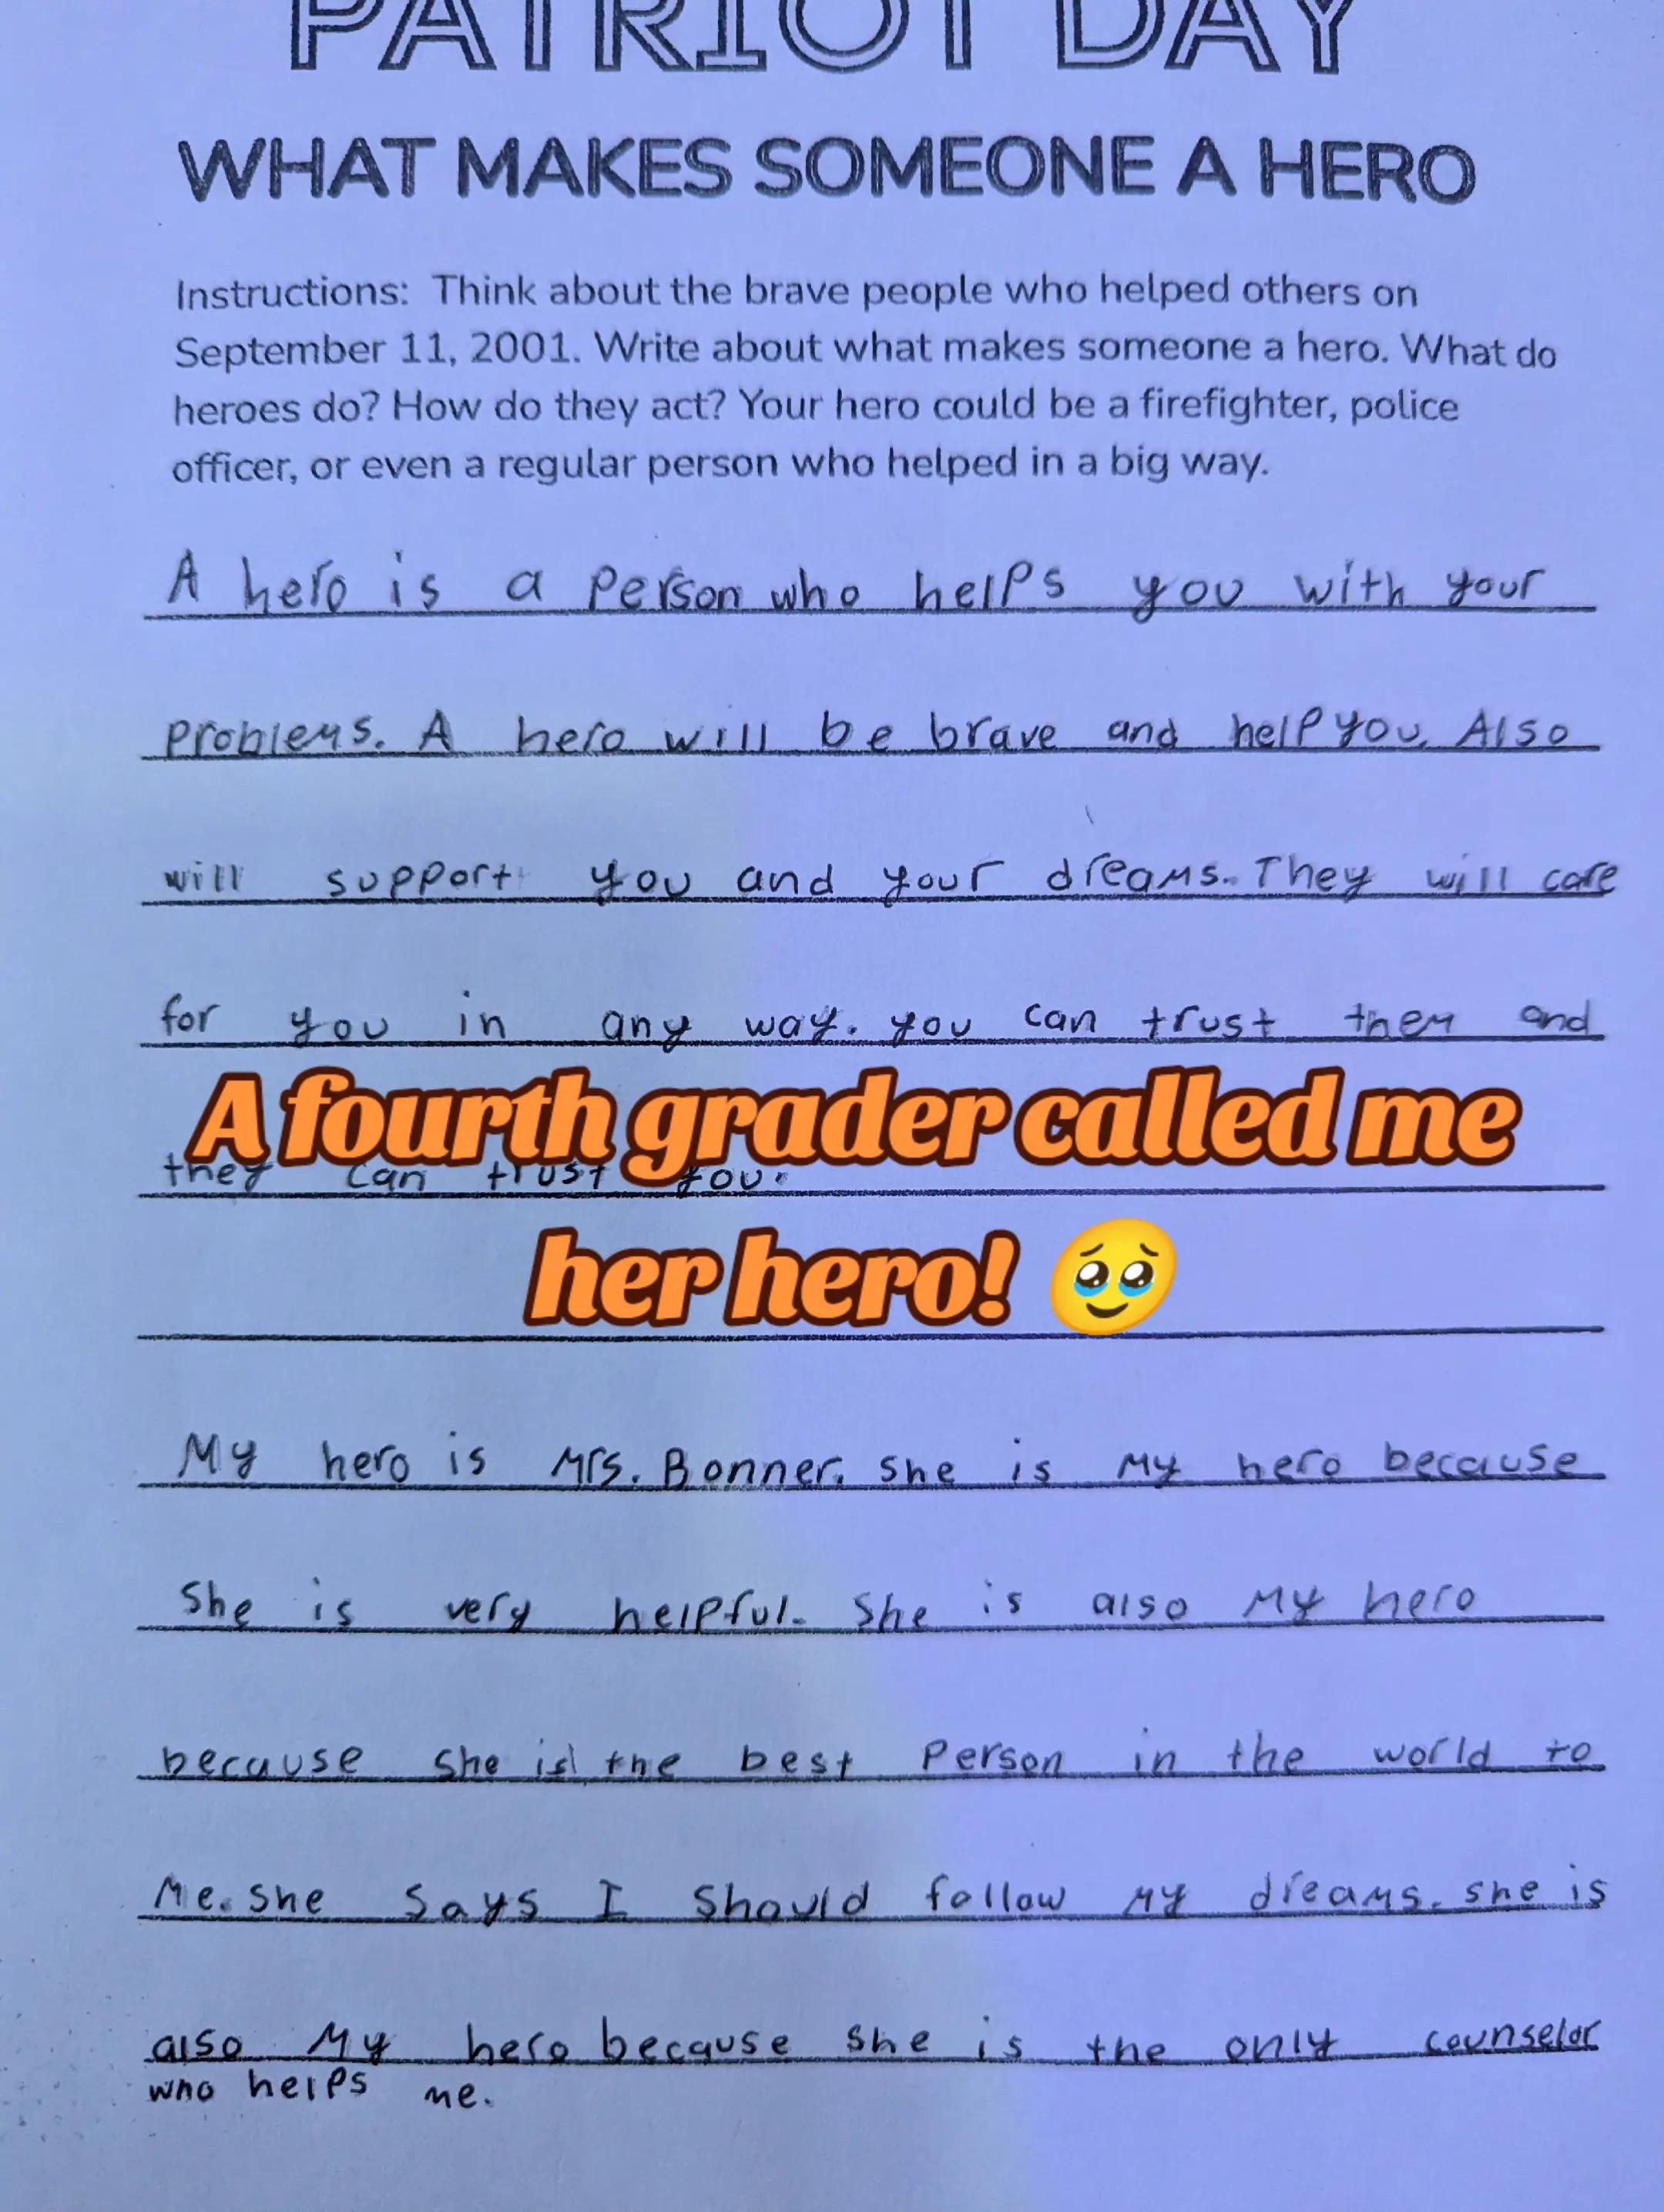 PATRIOT DAY
WHAT MAKES SOMEONE A HERO
Instructions: Think about the brave people who helped others on
September 11, 2001. Write about what makes someone a hero. What do
heroes do? How do they act? Your hero could be a firefighter, police
officer, or even a regular person who helped in a big way.
A hero is a person who helps you with your
problems. A hero will be brave and help you. Also
will support you and your dreams. They will care
for you in any way. you can trust them and
A fourth grader called me
they can trust you.
her hero! 🥹
My hero is Mrs. Bonner. she is my hero because
She is very helpful. She is also my hero
because she is the best person in the world to
me. She says I should follow my dreams. she is
also my hero because she is the only counselor
who helps me.